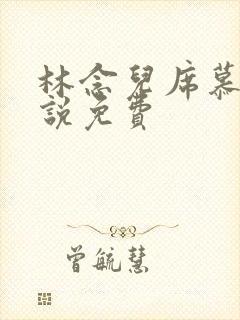 林念兒席慕
說免費
曾毓慧